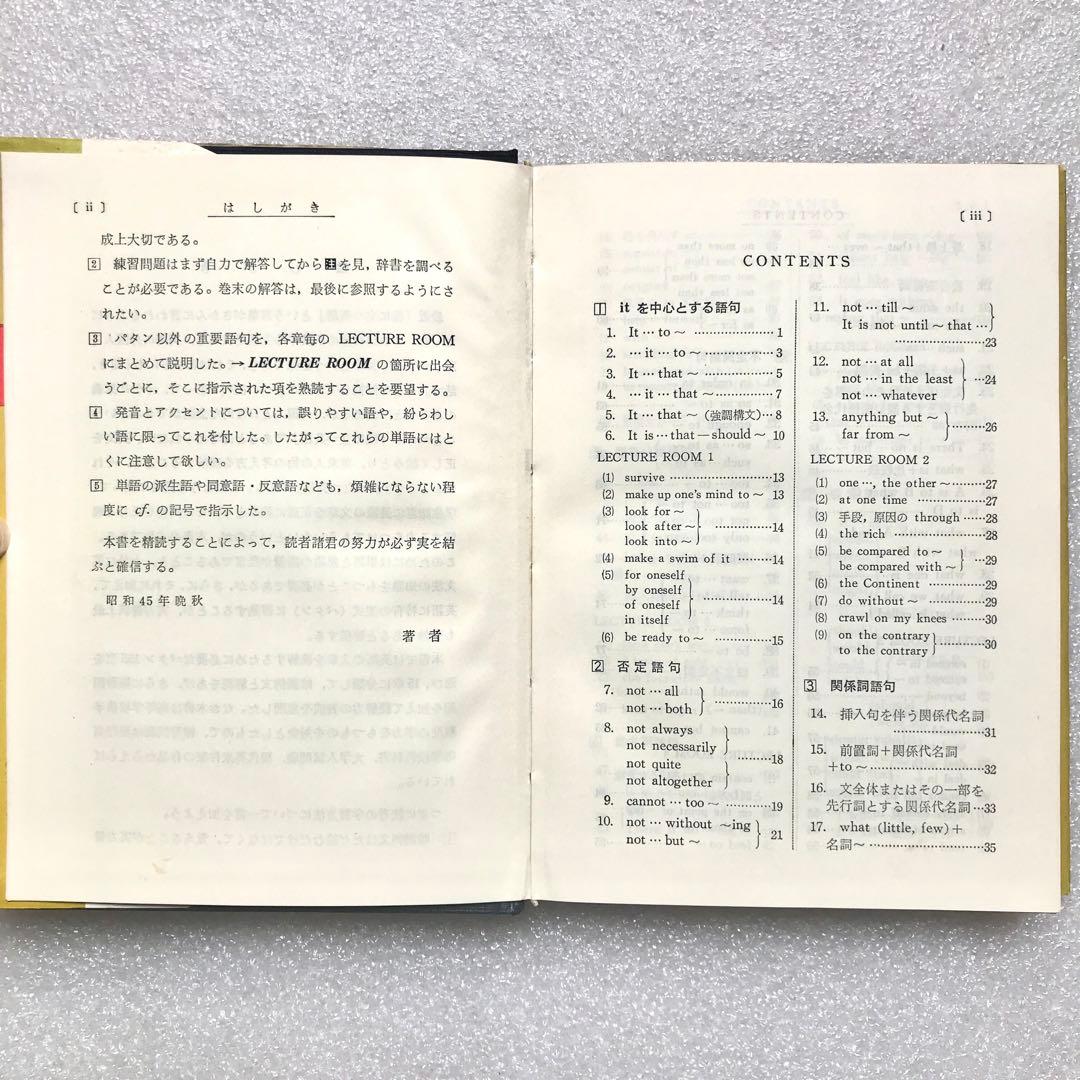 [ ii ]
はしがき
成上大切である。
2 練習問題はまず自力で解答してから注を見，辞書を調べる
ことが必要である。巻末の解答は，最後に参照するようにさ
れたい。
3 パタン以外の重要語句を，各章毎の LECTURE ROOM
にまとめて説明した。→ LECTURE ROOM の箇所に出会
うごとに，そこに指示された項を熟読することを要望する。
4 発音とアクセントについては，誤りやすい語や，紛らわし
い語に限ってこれを付した。したがってこれらの単語にはと
くに注意して欲しい。
5 単語の派生語や同意語・反意語なども，煩雑にならない程
度に cf. の記号で指示した。
本書を精読することによって，読者諸君の努力が必ず実を結
ぶと確信する。
昭和45年晩秋
著者
[ iii ]
CONTENTS
1 it を中心とする語句
1. It … to ～ ……………1
2. … it … to ～ ……………3
3. It … that ～ ……………5
4. … it … that ～ ……………7
5. It … that ～ (強調構文) … 8
6. It is … that — should ～ 10
LECTURE ROOM 1
(1) survive ……………13
(2) make up one's mind to ～ 13
(3) look for ～
look after ～
look into ～
……………14
(4) make a swim of it ………14
(5) for oneself
by oneself
of oneself
in itself
……………14
(6) be ready to ～ ……………15
2 否定語句
7. not … all
not … both
……………16
8. not always
not necessarily
not quite
not altogether
……………18
9. cannot … too ～ ……………19
10. not … without ～ing
not … but ～
21
11. not … till ～
It is not until ～ that …
……………23
12. not … at all
not … in the least
not … whatever
…24
13. anything but ～
far from ～
………26
LECTURE ROOM 2
(1) one …, the other ～ ………27
(2) at one time ……………27
(3) 手段，原因の through ……28
(4) the rich ……………28
(5) be compared to ～
be compared with ～
…29
(6) the Continent ……………29
(7) do without ～ ……………29
(8) crawl on my knees ………30
(9) on the contrary
to the contrary
………30
3 関係詞語句
14. 挿入句を伴う関係代名詞
……………31
15. 前置詞＋関係代名詞
＋to ～ ……………32
16. 文全体またはその一部を
先行詞とする関係代名詞…33
17. what (little, few)＋
名詞～ ……………35